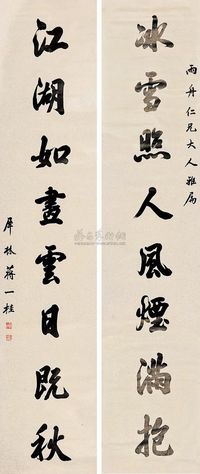 雨舟仁兄大人雅屬
冰雪照人風煙滿抱
江湖如畫雲日既秋
犀林蔣一桂